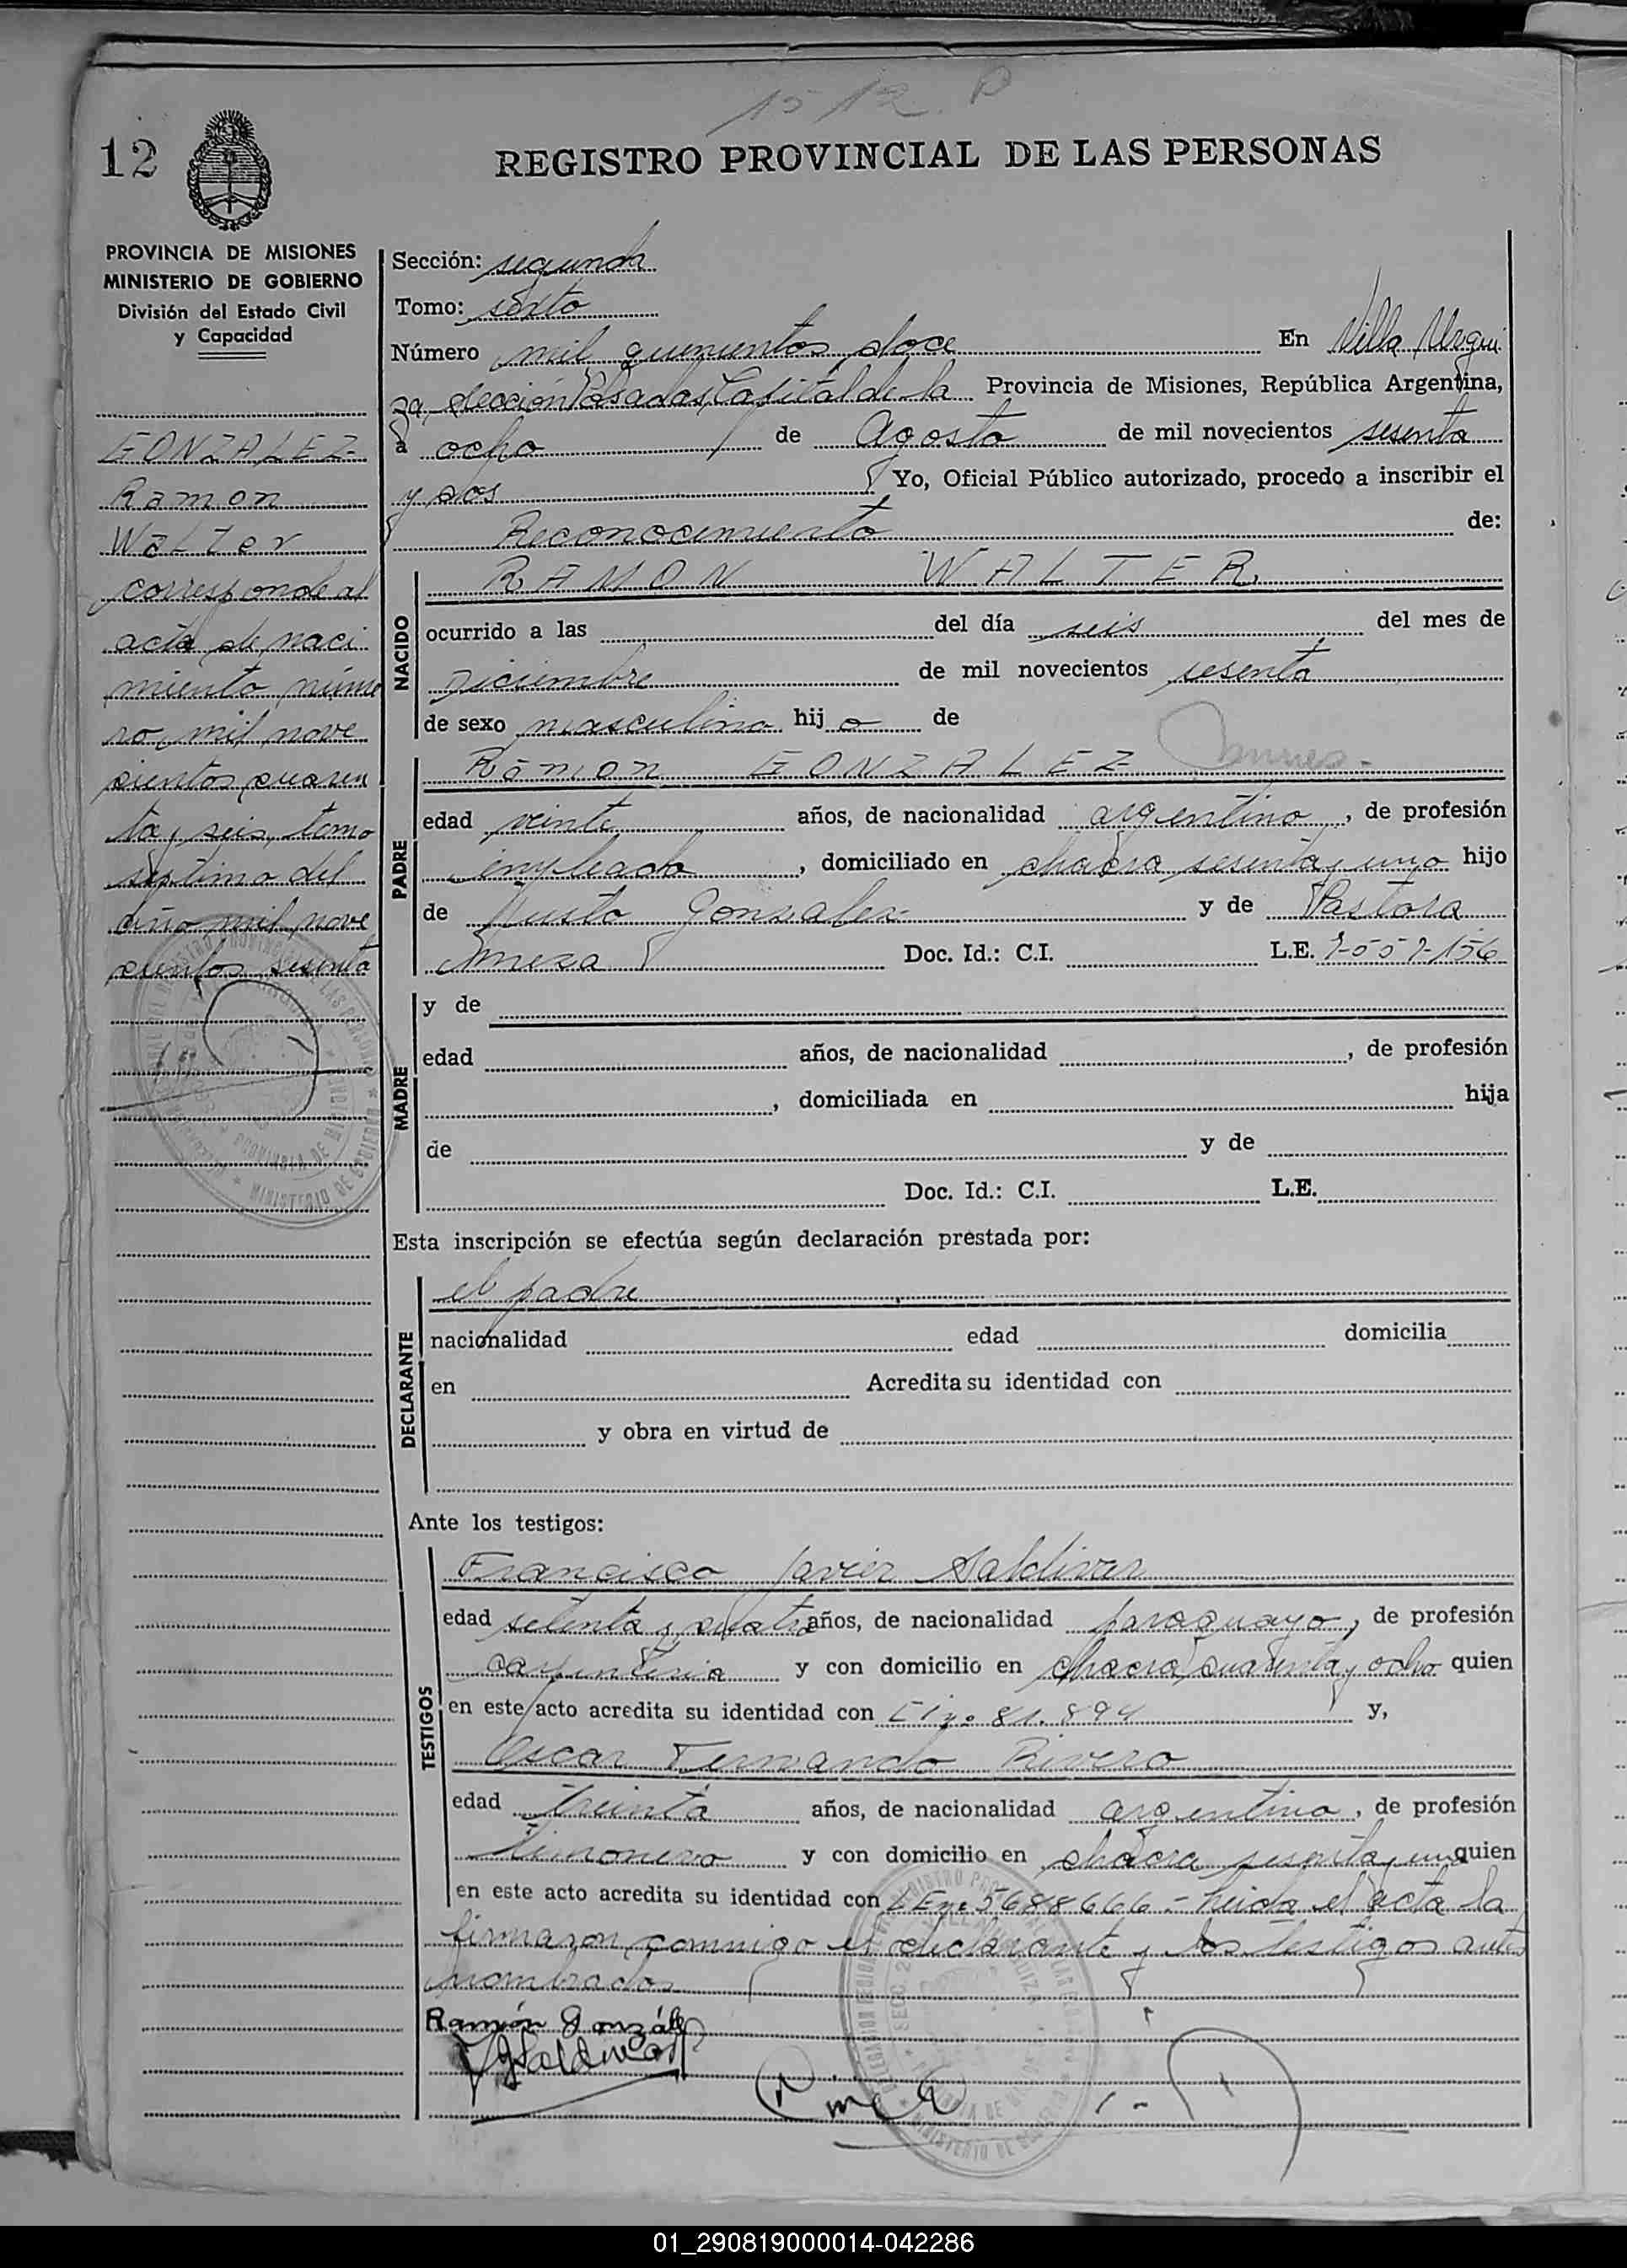 1512
12
REGISTRO PROVINCIAL DE LAS PERSONAS
PROVINCIA DE MISIONES
MINISTERIO DE GOBIERNO
División del Estado Civil
y Capacidad
GONZALEZ
Ramon
Walter
corresponde al
acta de naci
miento núme
ro, mil nove
cientos cuaren
ta y seis, tomo
séptimo del
año mil nove
cientos sesenta
Sección: segunda
Tomo: sexto
Número mil quinientos doce En Villa Urqui
za, sección Posadas, Capital de la Provincia de Misiones, República Argentina,
a ocho de Agosto de mil novecientos sesenta
y dos Yo, Oficial Público autorizado, procedo a inscribir el
Reconocimiento de:
NACIDO
RAMON WALTER
ocurrido a las del día seis del mes de
Diciembre de mil novecientos sesenta
de sexo masculino hijo de
PADRE
Ramon GONZALEZ
edad veinte años, de nacionalidad argentino, de profesión
empleado, domiciliado en chacra sesenta y uno hijo
de Justo Gonzalez y de Pastora
Doc. Id.: C.I. L.E. 7-557-156
MADRE
y de
edad años, de nacionalidad , de profesión
, domiciliada en hija
de y de
Doc. Id.: C.I. L.E.
Esta inscripción se efectúa según declaración prestada por:
DECLARANTE
el padre
nacionalidad edad domicilia
en Acredita su identidad con
y obra en virtud de
Ante los testigos:
TESTIGOS
Francisco Javier Saldivar
edad setenta y cuatro años, de nacionalidad paraguayo, de profesión
y con domicilio en chacra cuarenta y ocho quien
en este acto acredita su identidad con CI nº 81.894 y,
Oscar Fernando Rivero
edad treinta años, de nacionalidad argentino, de profesión
timonero y con domicilio en chacra sesenta y un quien
en este acto acredita su identidad con LE nº 5688666 - Leida el acta la
firmaron conmigo el declarante y los testigos antes
nombrados
Ramón González
01_290819000014-042286